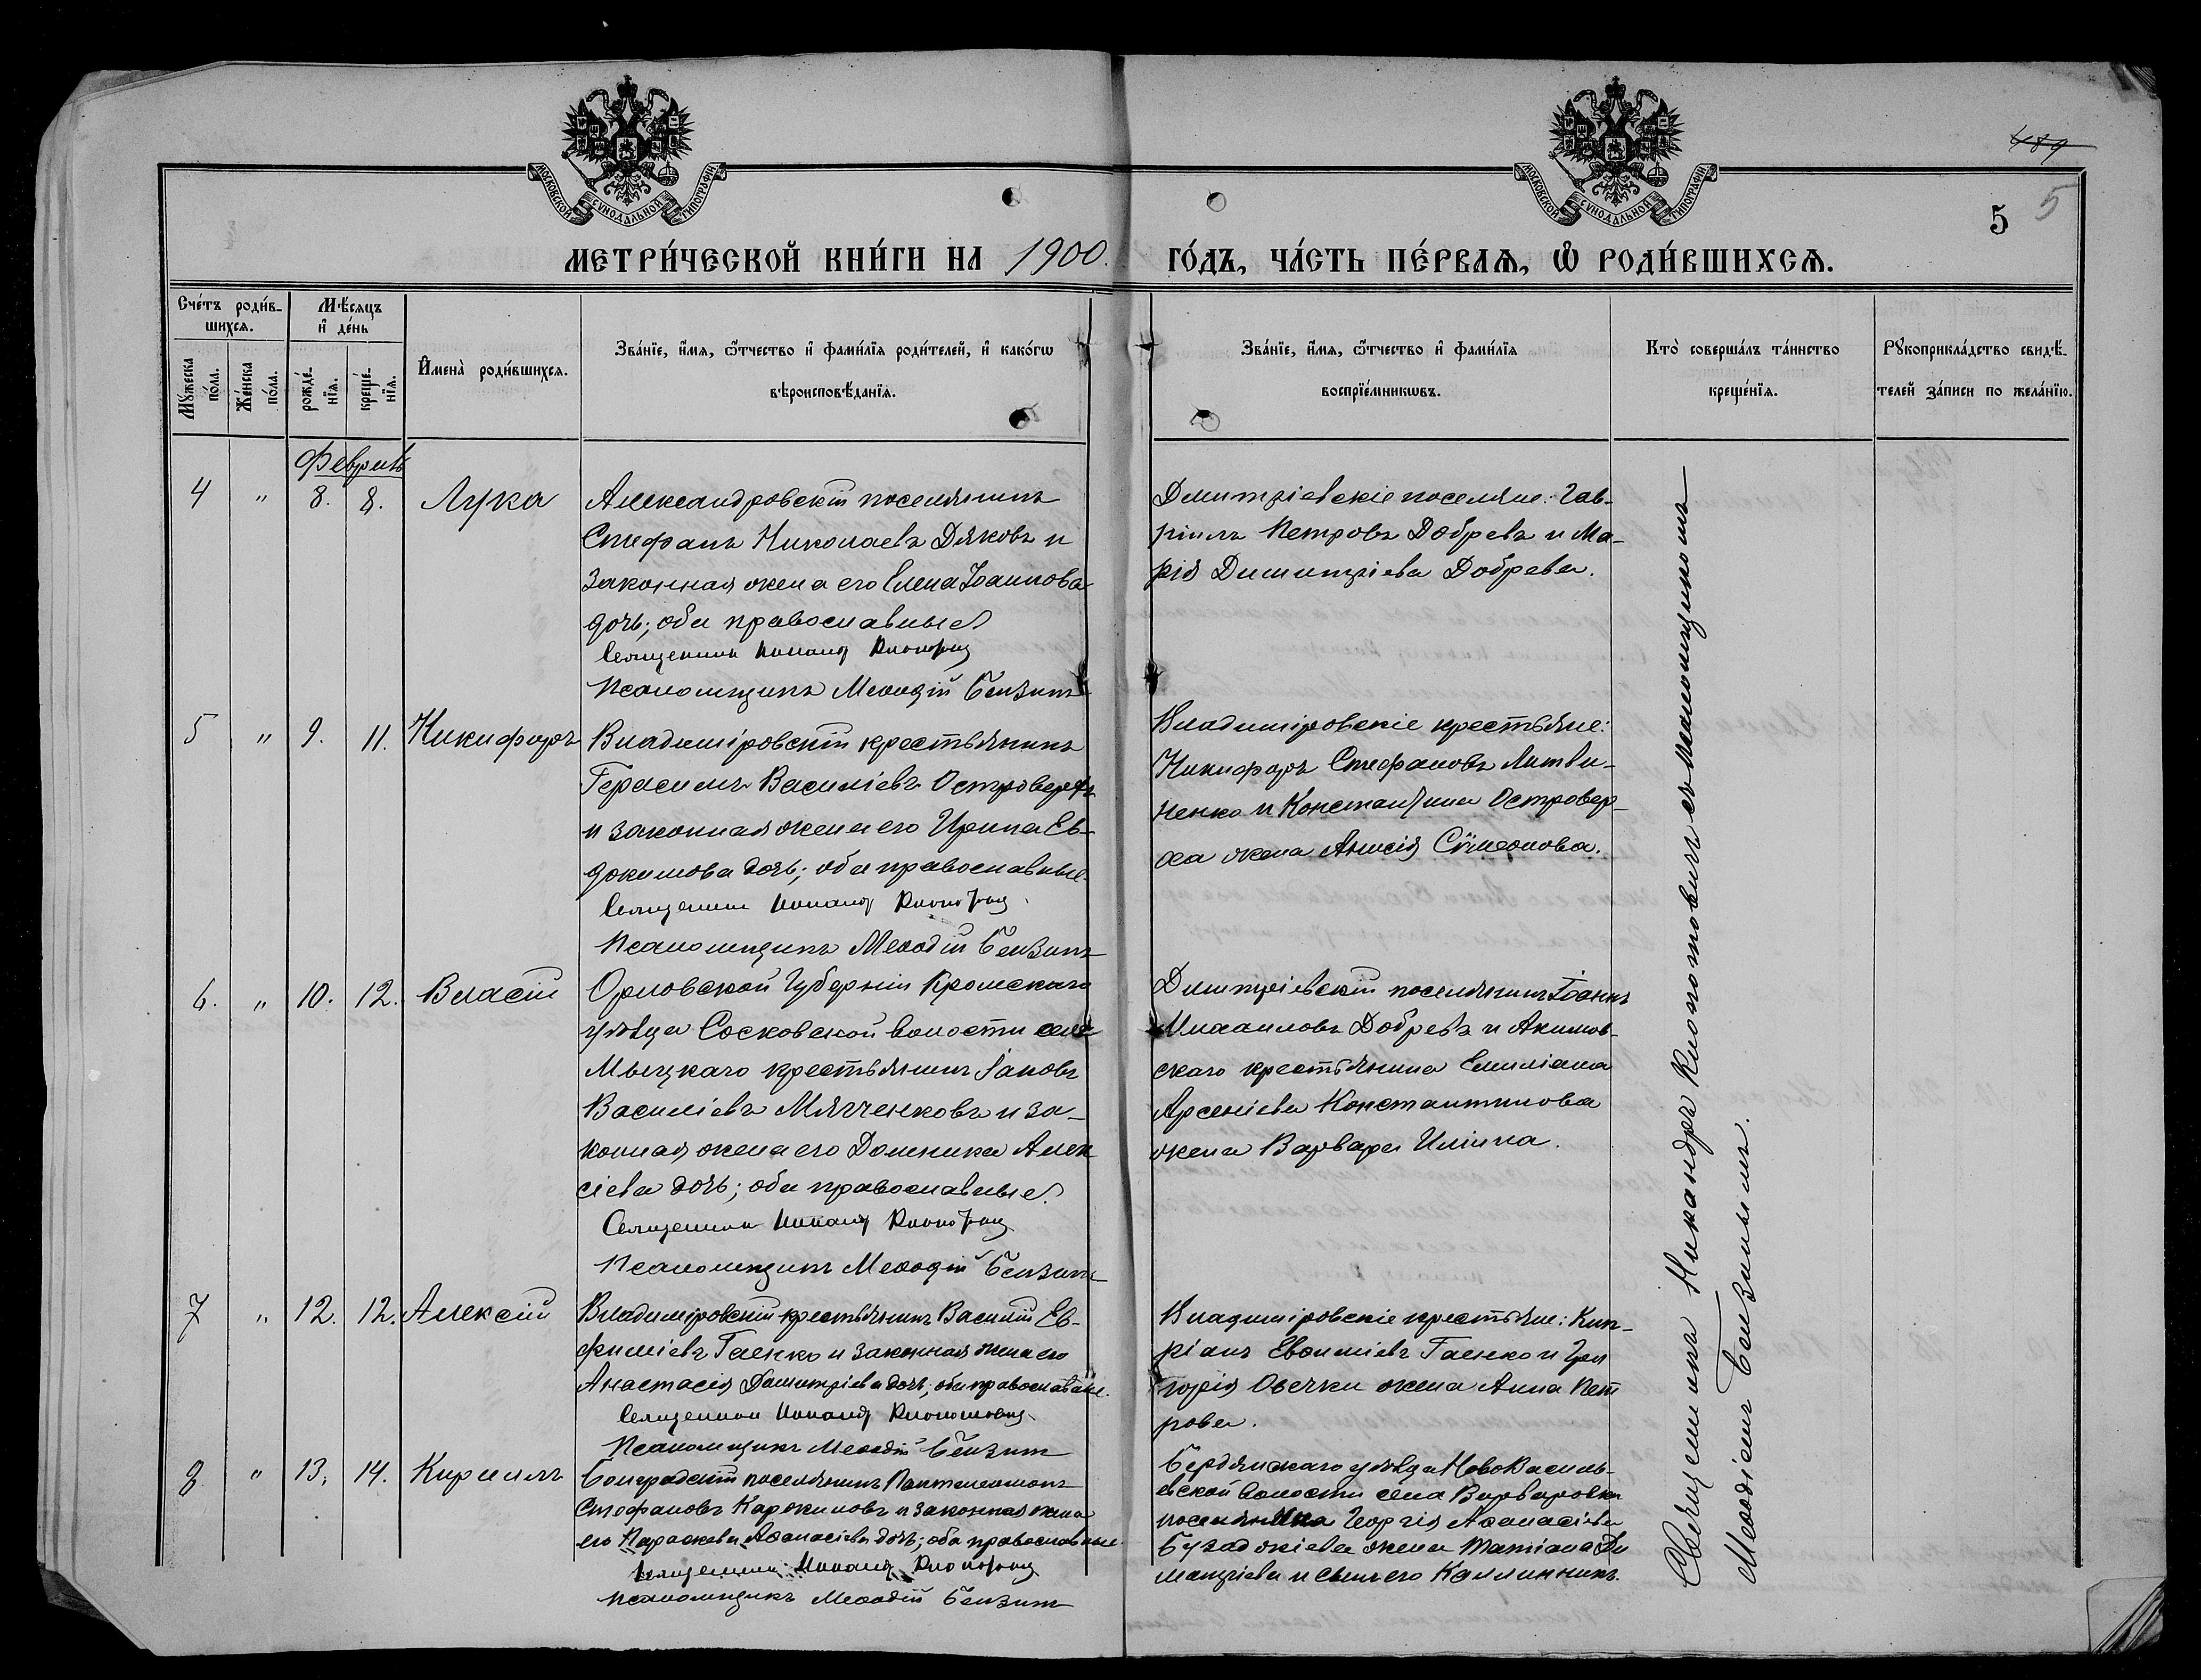 МОСКОВСКОЙ СѴНОДАЛЬНОЙ ТИПОГРАФІИ
МОСКОВСКОЙ СѴНОДАЛЬНОЙ ТИПОГРАФІИ
489
5 5
МЕТРИ́ЧЕСКОЙ КНИ́ГИ НА 1900. ГО́ДЪ, ЧА́СТЬ ПЕ́РВАѦ, Ѡ҆ РОДИ́ВШИХСѦ.
Сче́тъ роди́в-
шихсѧ.
Мꙋ́жеска по́ла.
Же́нска по́ла.
Мѣ́сѧцъ
и҆ де́нь
рожде́-
нїѧ.
креще́-
нїѧ.
И҆мена̀ роди́вшихсѧ.
Зва́нїе, и҆́мѧ, ѻ҆́тчество и҆ фами́лїѧ роди́телей, и҆ како́гѡ
вѣроисповѣ́данїѧ.
Зва́нїе, и҆́мѧ, ѻ҆́тчество и҆ фами́лїѧ
воспрїе́мникѡвъ.
Кто̀ соверша́лъ та́инство
креще́нїѧ.
Рꙋкоприкла́дство свидѣ́-
телей за́писи по жела́нїю.
Февраль
4 " 8. 8. Лука
Александровскій поселянинъ
Стефанъ Николаевъ Дяковъ и
законная жена его Елена Іоаннова
дочь; оба православные
Священникъ Никандр Клопотович
Псаломщикъ Меѳодій Бензинъ
Димитріевскіе поселяне: Гав-
ріилъ Петровъ Добревъ и Ма-
рія Димитріева Добрева.
5 " 9. 11. Никифоръ
Владиміровскій крестьянинъ
Герасимъ Василіевъ Островерхъ
и законная жена его Ирина Ев-
докимова дочь; оба православные.
Священникъ Никандр Клопотович
Псаломщикъ Меѳодій Бензинъ
Владиміровскіе крестьяне:
Никифоръ Стефановъ Литви-
ненко и Константина Островер-
ха жена Анисія Сѵмеонова.
6. " 10. 12. Власій
Орловской Губерніи Кромскаго
уѣзда Сосковской волости села
Мыцкаго крестьянинъ Іаковъ
Василіевъ Мягченковъ и за-
конная жена его Домника Алек
сіева дочь; оба православные.
Священникъ Никандр Клопотович
Псаломщикъ Меѳодій Бензинъ
Димитріевскій поселянинъ Іоаннъ
Михаиловъ Добревъ и Акимов-
скаго крестьянина Емиліана
Арсеніева Константинова
жена Варвара Иліина.
7 " 12. 12. Алексій
Владиміровскій крестьянинъ Василій Ев-
фиміевъ Гаенко и законная жена его
Анастасія Димитріева дочь; оба православные.
Священникъ Никандр Клопотович
Псаломщикъ Меѳодій Бензинъ
Владиміровскіе крестьяне: Кип-
ріанъ Евѳиміевъ Гаенко и Гри
горія Овечки жена Анна Пет
рова.
8 " 13. 14. Кириллъ
Болградскій поселянинъ Пантелеимонъ
Стефановъ Каражиновъ и законная жена
его Параскева Аѳанасіева дочь; оба православные.
Священникъ Никандр Клопотович
Псаломщикъ Меѳодій Бензинъ
Бердянскаго уѣзда НовоВасиль-
евской волости села Варваровки
поселянина Георгія Аѳанасіева
Бузаджіева жена Татіана Ди
митріева и сынъ его Каллинникъ.
Священникъ Никандръ Клопотовичъ съ псаломщикомъ
Меѳодіемъ Бензинымъ.